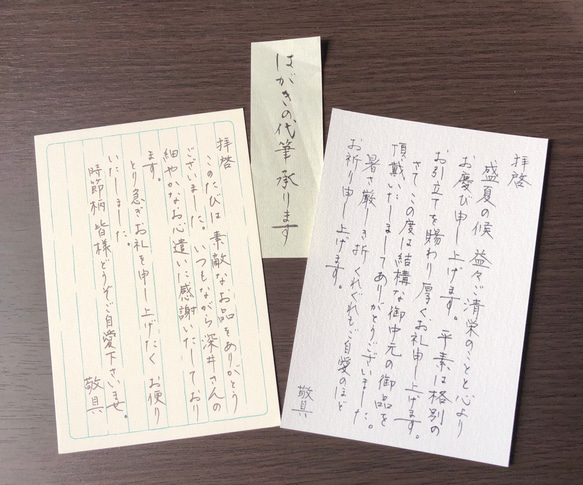 はがきの代筆承ります
拝啓
盛夏の候 益々ご清栄のことと心より
お慶び申し上げます。平素は格別の
お引立てを賜わり厚くお礼申し上げます。
さて、この度は結構な御中元の御品を
頂戴いたしましてありがとうございました。
暑さ厳しき折くれぐれもご自愛のほど
お祈り申し上げます。
敬具
拝啓
このたびは素敵なお品をありがとう
ございました。いつもながら深井さんの
細やかなお心遣いに感謝いたしており
ます。
とり急ぎお礼を申し上げたくお便り
いたしました
時節柄皆様どうぞご自愛下さいませ。
敬具